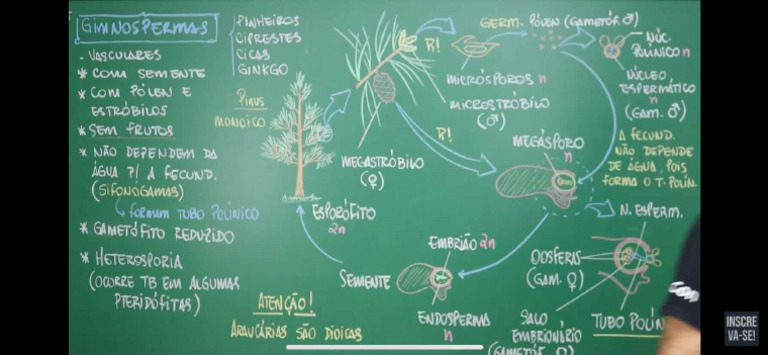 GIMNOSPERMAS
PINHEIROS
CIPRESTES
CICAS
GINKGO
- VASCULARES
* COM SEMENTE
* COM PÓLEN E
ESTRÓBILOS
* SEM FRUTOS
* NÃO DEPENDEM DA
ÁGUA P/ A FECUND.
(SIFONÓGAMAS)
FORMAM TUBO POLÍNICO
* GAMETÓFITO REDUZIDO
* HETEROSPORIA
(OCORRE TB EM ALGUMAS
PTERIDÓFITAS)
PINUS
MONOICO
ESPORÓFITO
2n
MEGASTRÓBILO
(♀)
R!
GERM.
PÓLEN (GAMETÓF. ♂)
MICRÓSPOROS n
MICROSTRÓBILO
(♂)
R!
NÚC.
POLÍNICO n
NÚCLEO
ESPERMÁTICO
n
(GAM. ♂)
A FECUND.
NÃO DEPENDE
DE ÁGUA, POIS
FORMA O T. POLÍN.
MEGÁSPORO
n
N. ESPERM.
OOSFERAS
(GAM. ♀)
TUBO POLÍN
SACO
EMBRIONÁRIO
(GAMETÓF. ♀)
EMBRIÃO 2n
SEMENTE
ENDOSPERMA
n
ATENÇÃO!
ARAUCÁRIAS SÃO DIOICAS
INSCRE
VA-SE!